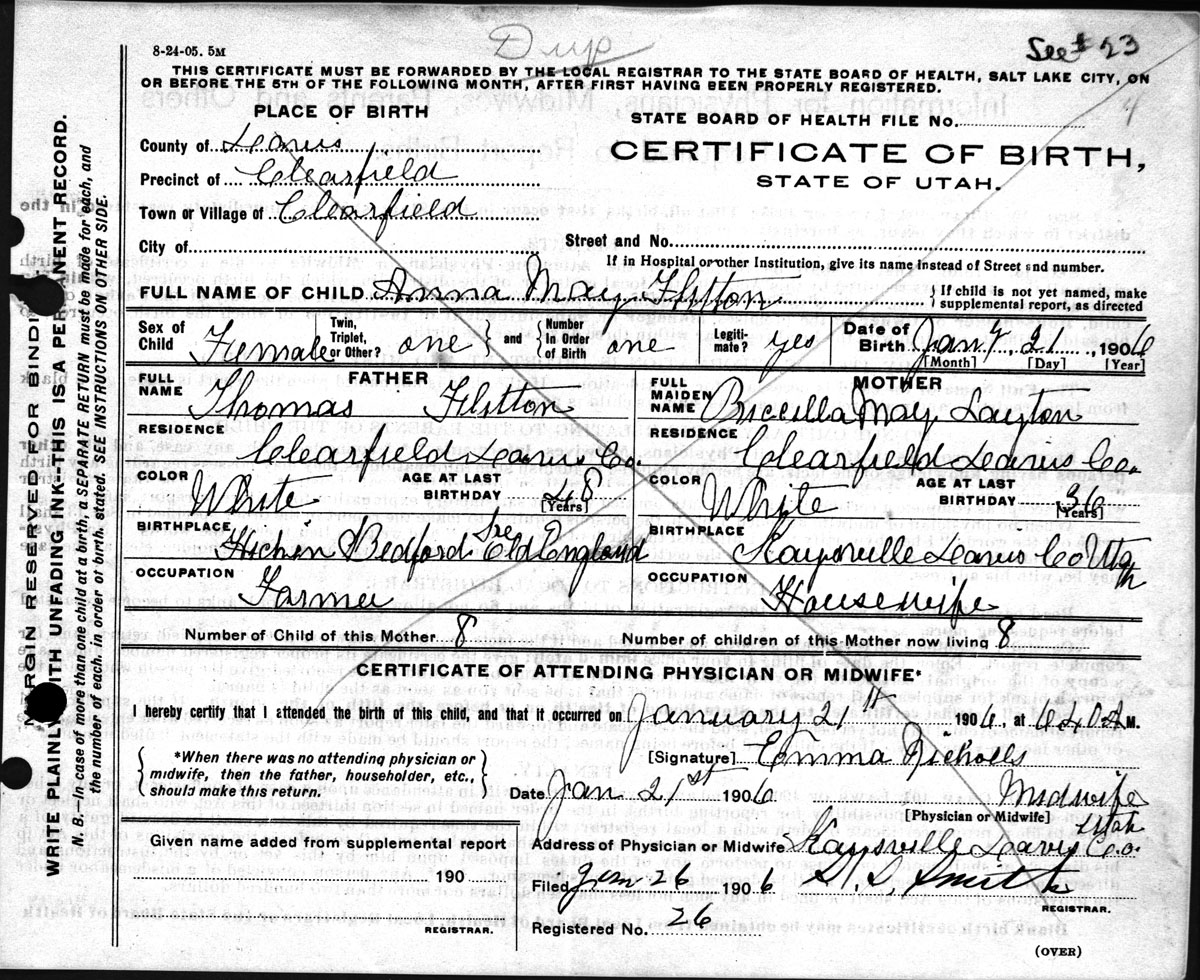 8-24-05. 5M
Dup
See # 23
4
THIS CERTIFICATE MUST BE FORWARDED BY THE LOCAL REGISTRAR TO THE STATE BOARD OF HEALTH, SALT LAKE CITY, ON
OR BEFORE THE 5TH OF THE FOLLOWING MONTH, AFTER FIRST HAVING BEEN PROPERLY REGISTERED.
PLACE OF BIRTH
STATE BOARD OF HEALTH FILE No.
County of Davis
CERTIFICATE OF BIRTH,
Precinct of Clearfield
STATE OF UTAH.
Town or Village of Clearfield
City of
Street and No.
If in Hospital or other Institution, give its name instead of Street and number.
FULL NAME OF CHILD Anna May Flitton
If child is not yet named, make
supplemental report, as directed
Sex of Child Female
Twin, Triplet, or Other? one
and
Number In Order of Birth one
Legiti-mate? yes
Date of Birth Jany. 21, 1906
[Month] [Day] [Year]
FATHER
FULL NAME Thomas Flitton
RESIDENCE
Clearfield Davis Co.
COLOR White
AGE AT LAST BIRTHDAY 48
[Years]
BIRTHPLACE
Hichin Bedford Old England
OCCUPATION
Farmer
MOTHER
FULL MAIDEN NAME Priscilla May Layton
RESIDENCE
Clearfield Davis Co.
COLOR White
AGE AT LAST BIRTHDAY 36
[Years]
BIRTHPLACE
Kaysville Davis Co Utah
OCCUPATION
Housewife
Number of Child of this Mother 8
Number of children of this Mother now living 8
CERTIFICATE OF ATTENDING PHYSICIAN OR MIDWIFE*
I hereby certify that I attended the birth of this child, and that it occurred on January 21st 1906, at 640 A M.
*When there was no attending physician or
midwife, then the father, householder, etc.,
should make this return.
[Signature] Emma Nicholls
Date Jan 21st 1906 Midwife
[Physician or Midwife]
Given name added from supplemental report
190
REGISTRAR.
Utah
Address of Physician or Midwife Kaysville Davis Co.
Filed Jan 26 1906 Smith
REGISTRAR.
Registered No. 26
(OVER)
MARGIN RESERVED FOR BINDI
WRITE PLAINLY WITH UNFADING INK—THIS IS A PERMANENT RECORD.
N. B.—In case of more than one child at a birth, a SEPARATE RETURN must be made for each, and
the number of each, in order of birth, stated. SEE INSTRUCTIONS ON OTHER SIDE.